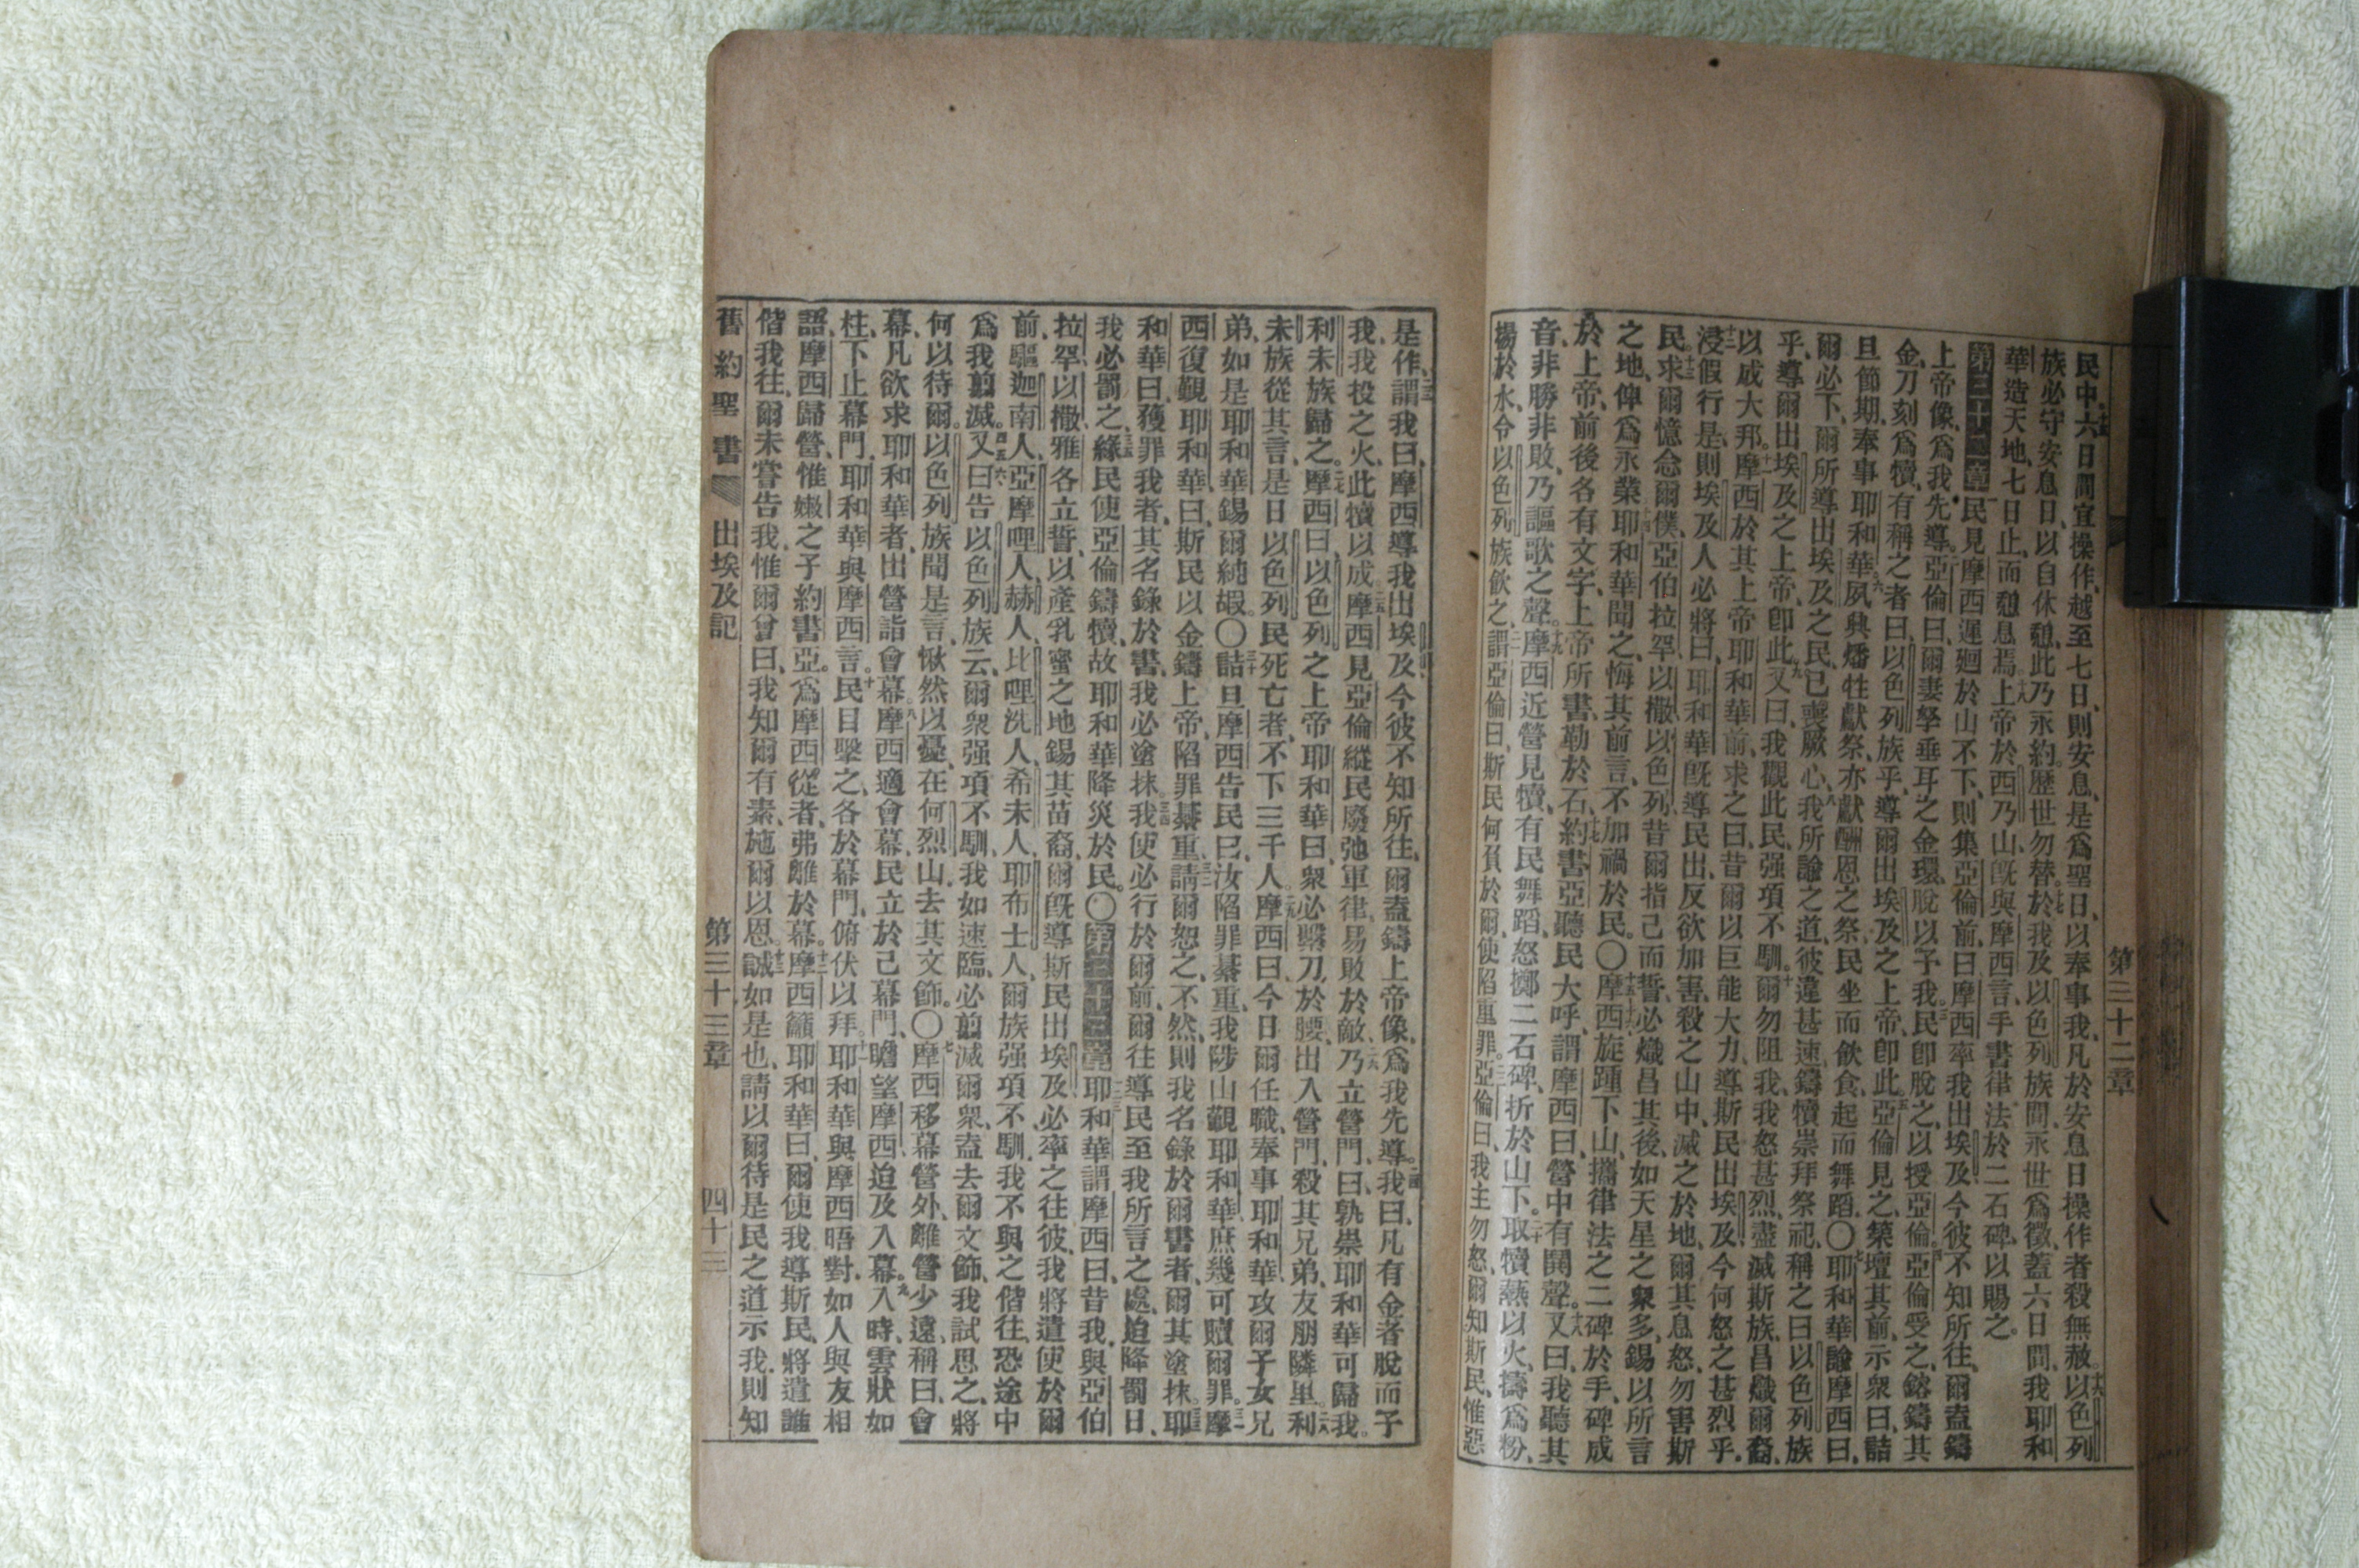 民中、十五六日間宜操作、越至七日、則安息、是爲聖日、以奉事我、凡於安息日操作者殺無赦。十六以色列
族必守安息日、以自休憩、此乃永約。歷世勿替。十七於我及以色列族間、永世爲徵、蓋六日間、我耶和
華造天地、七日止、而憩息焉。十八上帝於西乃山、旣與摩西言、手書律法於二石碑、以賜之。
第三十二章 一民見摩西遲廻於山不下、則集亞倫前、曰、摩西率我出埃及、今彼不知所往、爾盍鑄
上帝像、爲我先導。二亞倫曰、爾妻孥垂耳之金環、脫以予我、三民卽脫之、以授亞倫。四亞倫受之、鎔鑄其
金、刀刻爲犢、有稱之者曰、以色列族乎、導爾出埃及之上帝卽此、五亞倫見之、築壇其前、示衆曰、詰
旦節期、奉事耶和華。六夙興燔牲獻祭、亦獻酬恩之祭、民坐而飮食、起而舞蹈、〇七耶和華諭摩西曰、
爾必下、爾所導出埃及之民、已喪厥心、八我所諭之道、彼違甚速、鑄犢崇拜祭祀、稱之曰、以色列族
乎、導爾出埃及之上帝、卽此、九又曰、我觀此民、强項不馴、十爾勿阻我、我怒甚烈、盡滅斯族、昌熾爾裔、
以成大邦。十一摩西於其上帝耶和華前、求之曰、昔爾以巨能大力、導斯民出埃及、今何怒之甚烈乎、
十二浸假行是、則埃及人必將曰、耶和華旣導民出、反欲加害、殺之山中、滅之於地、爾其息怒、勿害斯
民。十三求爾憶念爾僕、亞伯拉罕、以撒、以色列、昔爾指己而誓、必熾昌其後、如天星之衆多、錫以所言
之地、俾爲永業、十四耶和華聞之、悔其前言、不加禍於民。〇十五十六摩西旋踵下山、攜律法之二碑於手、碑成
於上帝、前後各有文字、上帝所書、勒於石、十七約書亞聽民大呼、謂摩西曰、營中有鬬聲。十八又曰、我聽其
音、非勝非敗、乃謳歌之聲。十九摩西近營見犢、有民舞蹈、怒擲二石碑、折於山下。二十取犢爇以火、擣爲粉、
揚於水、令以色列族飮之、二一謂亞倫曰、斯民何負於爾、使陷重罪。二二亞倫曰、我主勿怒、爾知斯民、惟惡
第三十二章
是作、二三謂我曰、摩西導我出埃及、今彼不知所往、爾盍鑄上帝像、爲我先導。二四我曰、凡有金者脫而予
我、我投之火、此犢以成。二五摩西見亞倫縱民廢弛軍律、易敗於敵、二六乃立營門、曰、孰崇耶和華、可歸我。
利未族歸之。二七摩西曰、以色列之上帝耶和華曰、衆必繫刀於腰、出入營門、殺其兄弟、友朋、隣里。二八利
未族從其言、是日以色列民死亡者、不下三千人。二九摩西曰、今日爾任職奉事耶和華、攻爾子女兄
弟、如是耶和華錫爾純嘏。〇三十詰旦摩西告民曰、汝陷罪綦重、我陟山覲耶和華、庶幾可贖爾罪。三一摩
西復覲耶和華曰、斯民以金鑄上帝、陷罪綦重、三二請爾恕之、不然、則我名錄於爾書者、爾其塗抹。三三耶
和華曰、獲罪我者、其名錄於書、我必塗抹。三四我使必行於爾前、爾往導民至我所言之處、迨降罰日、
我必罰之、三五緣民使亞倫鑄犢、故耶和華降災於民。〇第三十三章 一二三耶和華謂摩西曰、昔我與亞伯
拉罕、以撒、雅各立誓、以產乳蜜之地錫其苗裔、爾旣導斯民出埃及、必率之往彼、我將遣使於爾
前、驅迦南人、亞摩哩人、赫人、比哩洗人、希未人、耶布士人、爾族强項不馴、我不與之偕往、恐途中
爲我翦滅。四五六又曰告以色列族云、爾衆强項不馴、我如速臨、必翦滅爾衆、盍去爾文飾、我試思之、將
何以待爾。以色列族聞是言、愀然以憂、在何烈山去其文飾。〇七摩西移幕營外、離營少遠、稱曰、會
幕、凡欲求耶和華者、出營詣會幕。八摩西適會幕、民立於己幕門、瞻望摩西、迨及入幕。九入時、雲狀如
柱、下止幕門、耶和華與摩西言。十民目擊之、各於幕門、俯伏以拜。十一耶和華與摩西晤對、如人與友相
語、摩西歸營、惟嫩之子約書亞。爲摩西從者、弗離於幕。十二摩西籲耶和華曰、爾使我導斯民、將遣誰
偕我往、爾未嘗告我、惟爾曾曰、我知爾有素、施爾以恩。十三誠如是也、請以爾待是民之道示我、則知
舊約聖書 出埃及記 第三十三章 四十三